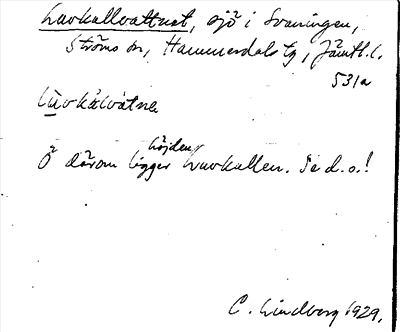 Luvkullvattnet, sjö i Svaningen,
Ströms sn, Hammerdals tg, Jämtl. l.
531a
lùvkălvàtnε
Ö därom ligger höjden Luvkullen. Se d. o.!
C. Lindberg 1929.